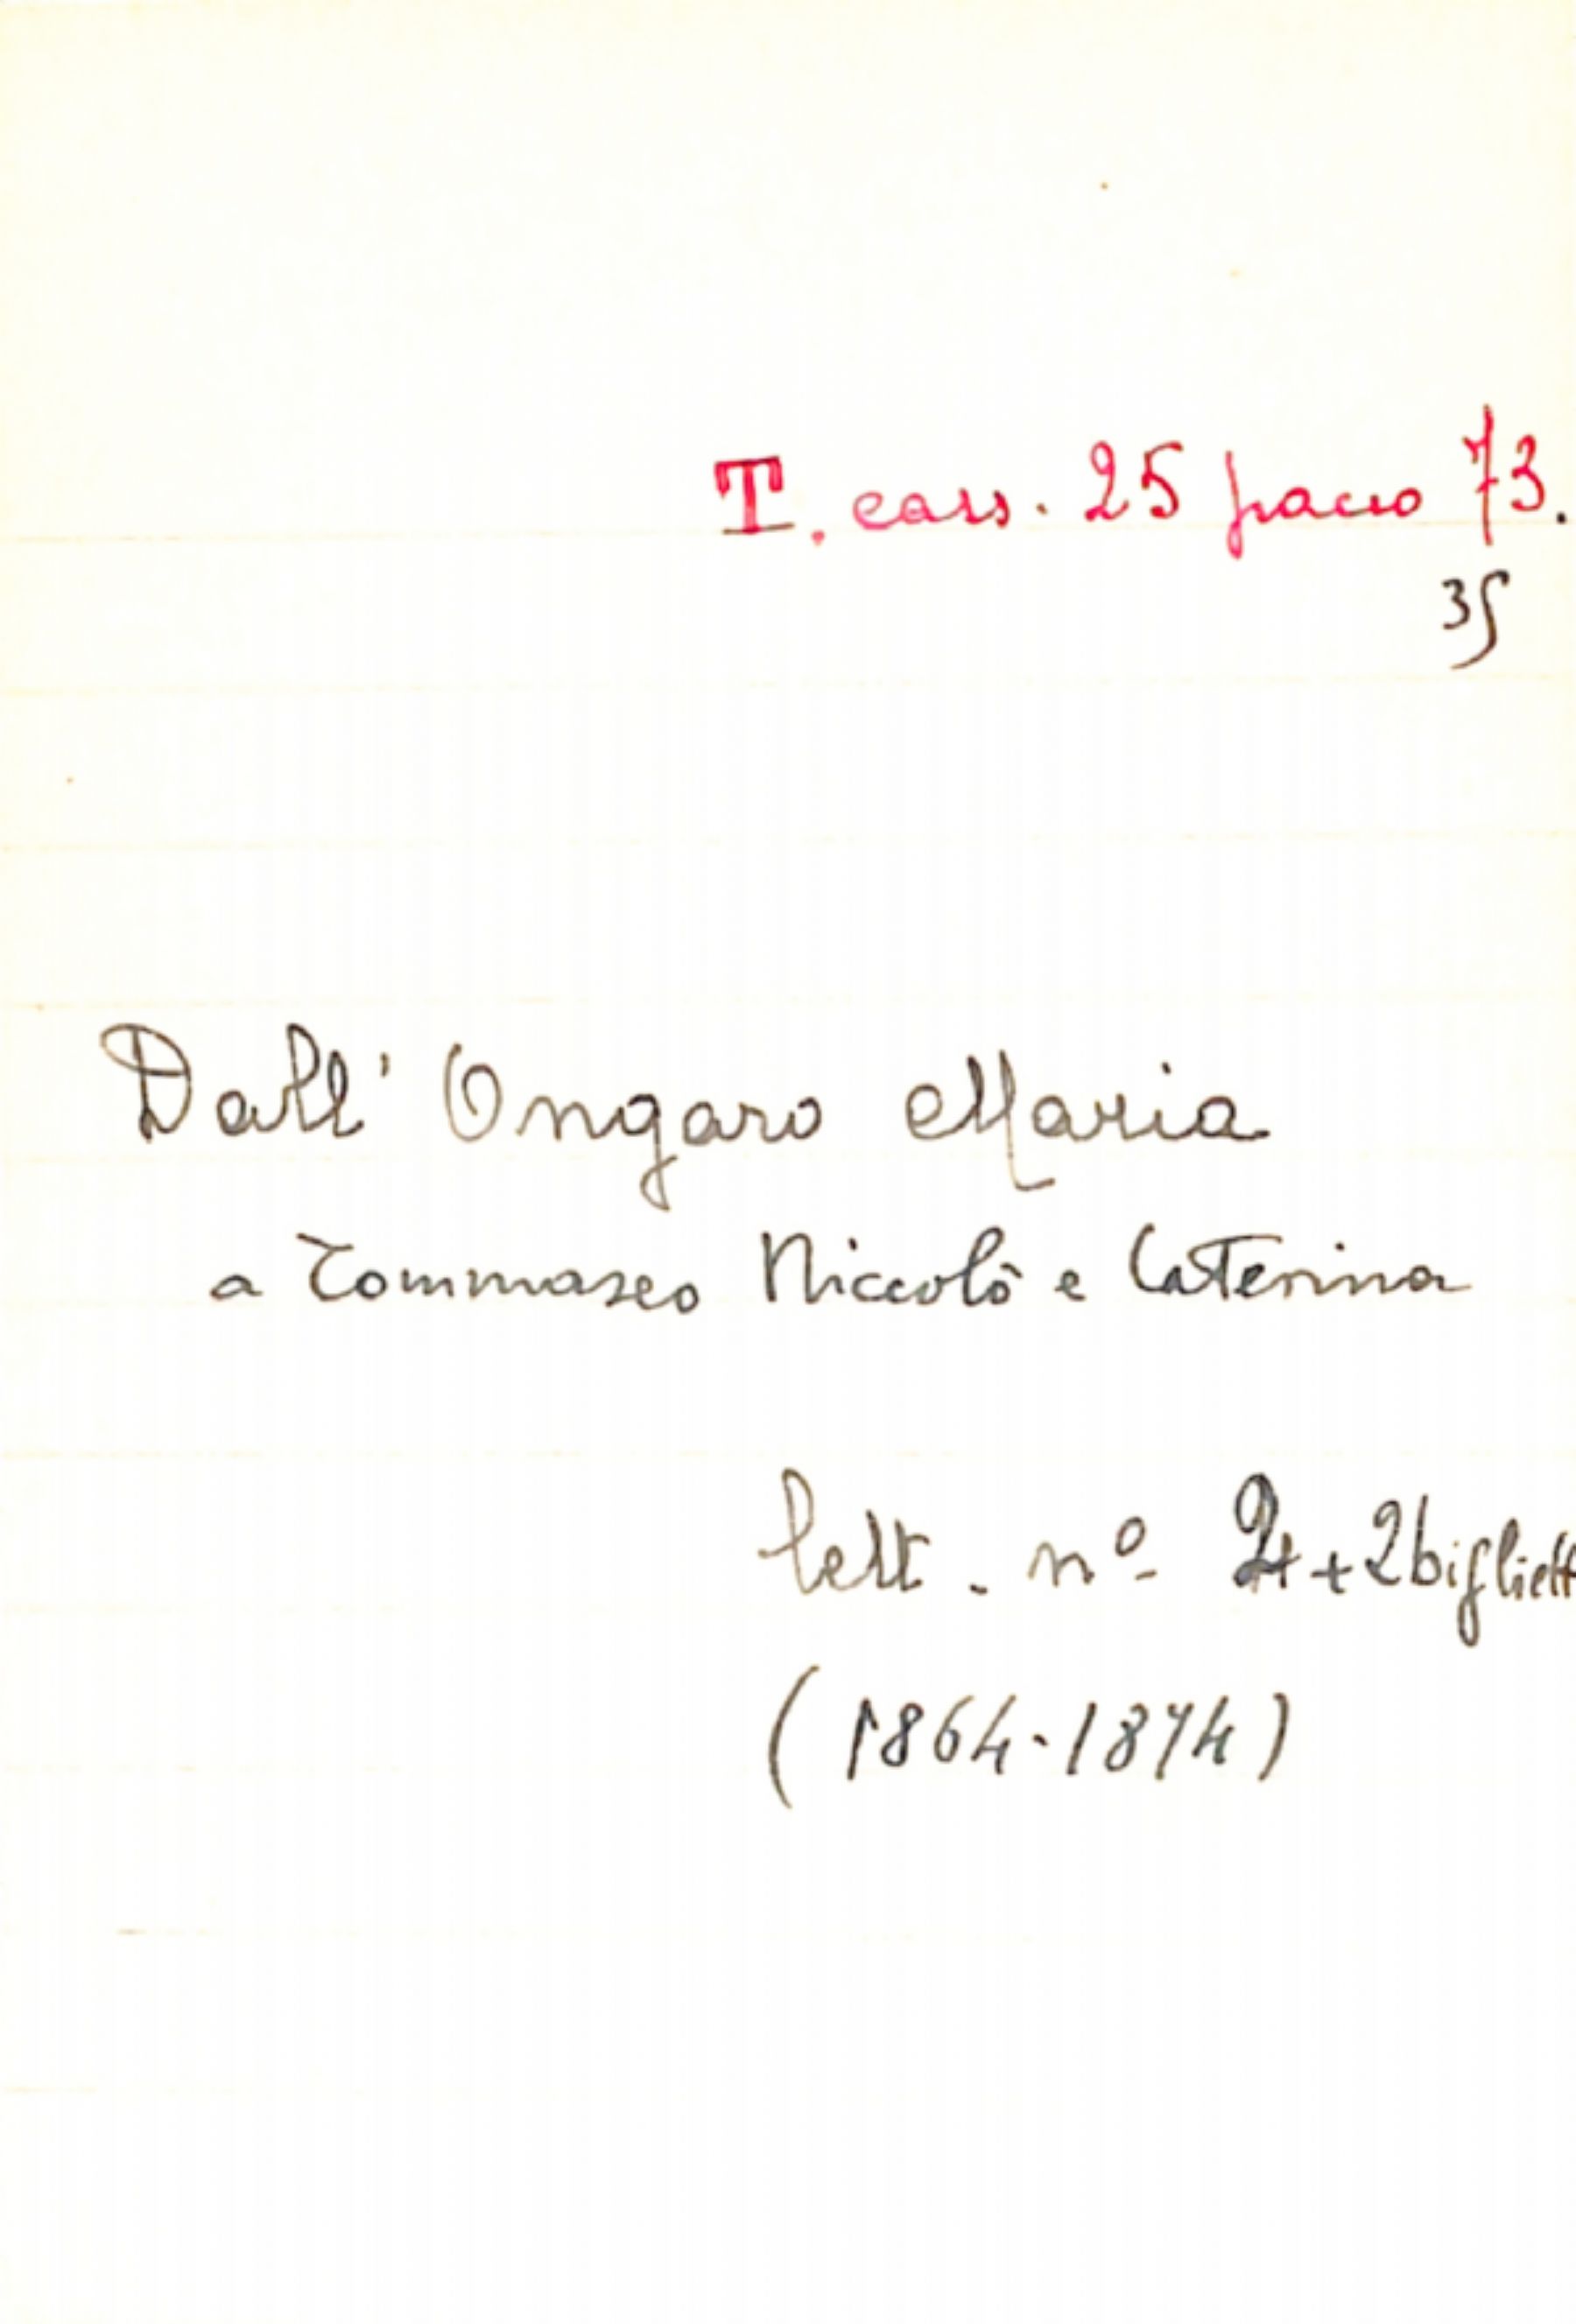 T. cass. 25 pacco 73.
35
Dall' Ongaro Maria
a Tommaseo Niccolò e Caterina
lett. nº + 2 bigliett
(1864-1874)